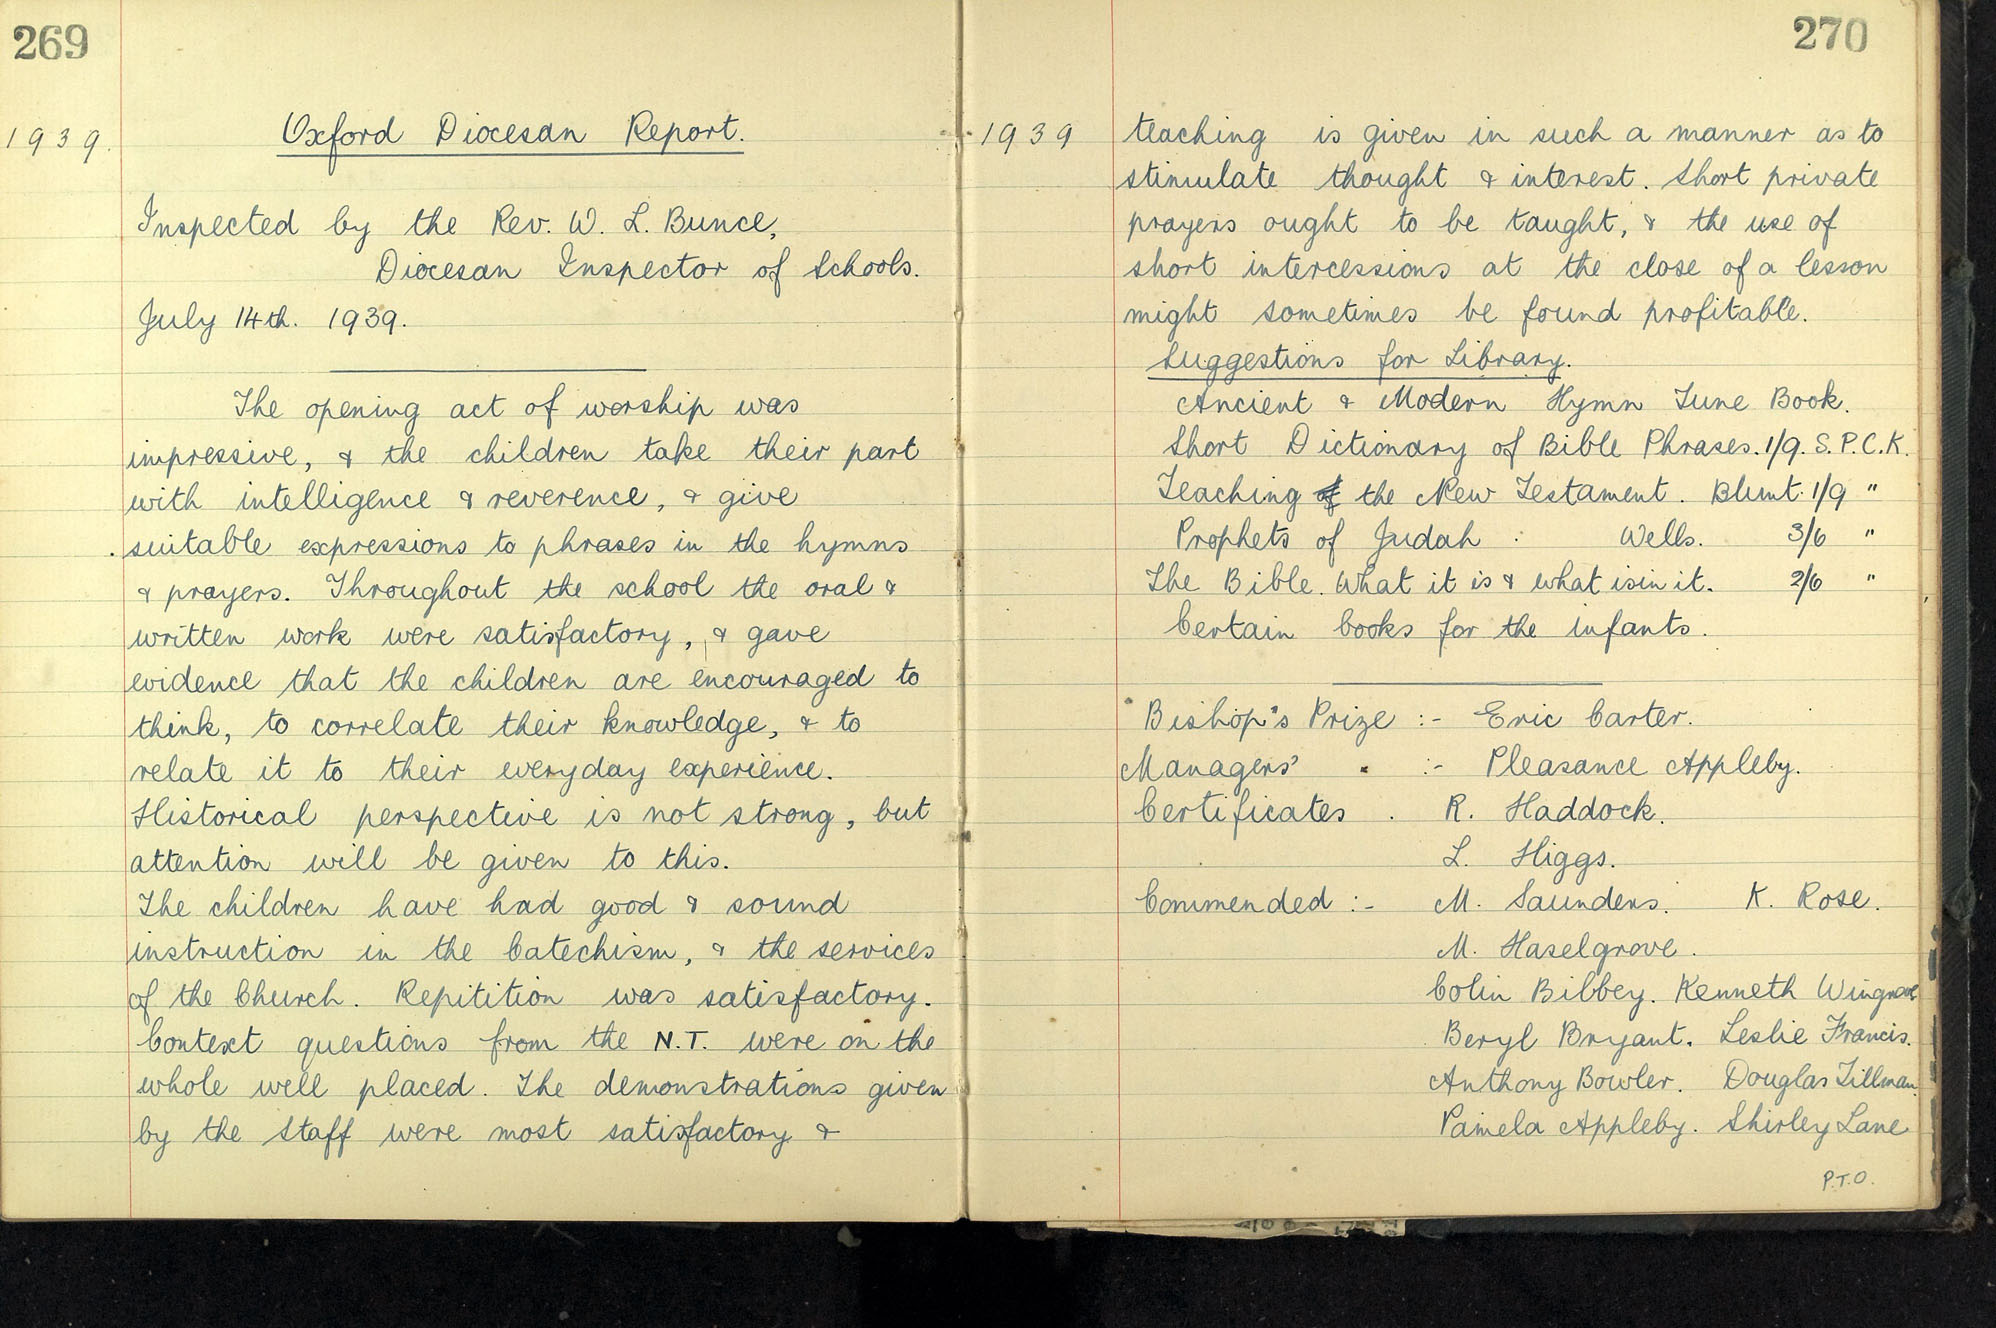 269
1939.
Oxford Diocesan Report.
Inspected by the Rev. W. L. Bunce,
Diocesan Inspector of Schools.
July 14th. 1939.
The opening act of worship was
impressive, & the children take their part
with intelligence & reverence, & give
suitable expressions to phrases in the hymns
& prayers. Throughout the school the oral &
written work were satisfactory, & gave
evidence that the children are encouraged to
think, to correlate their knowledge, & to
relate it to their everyday experience.
Historical perspective is not strong, but
attention will be given to this.
The children have had good & sound
instruction in the Catechism, & the services
of the Church. Repitition was satisfactory.
Context questions from the N.T. were on the
whole well placed. The demonstrations given
by the Staff were most satisfactory &
270
1939
teaching is given in such a manner as to
stimulate thought & interest. Short private
prayers ought to be taught, & the use of
short intercessions at the close of a lesson
might sometimes be found profitable.
Suggestions for Library.
Ancient & Modern Hymn Tune Book.
Short Dictionary of Bible Phrases. 1/9. S.P.C.K.
Teaching of the New Testament. Blunt. 1/9 "
Prophets of Judah : Wells. 3/6 "
The Bible. What it is & what is in it. 2/6 "
Certain books for the infants.
Bishop's Prize :- Eric Carter.
Managers' " :- Pleasance Appleby.
Certificates . R. Haddock.
L. Higgs.
Commended :- M. Saunders. K. Rose.
M. Haselgrove.
Colin Bibbey. Kenneth Wingrove
Beryl Bryant. Leslie Francis.
Anthony Bowler. Douglas Tillman.
Pamela Appleby. Shirley Lane
P.T.O.